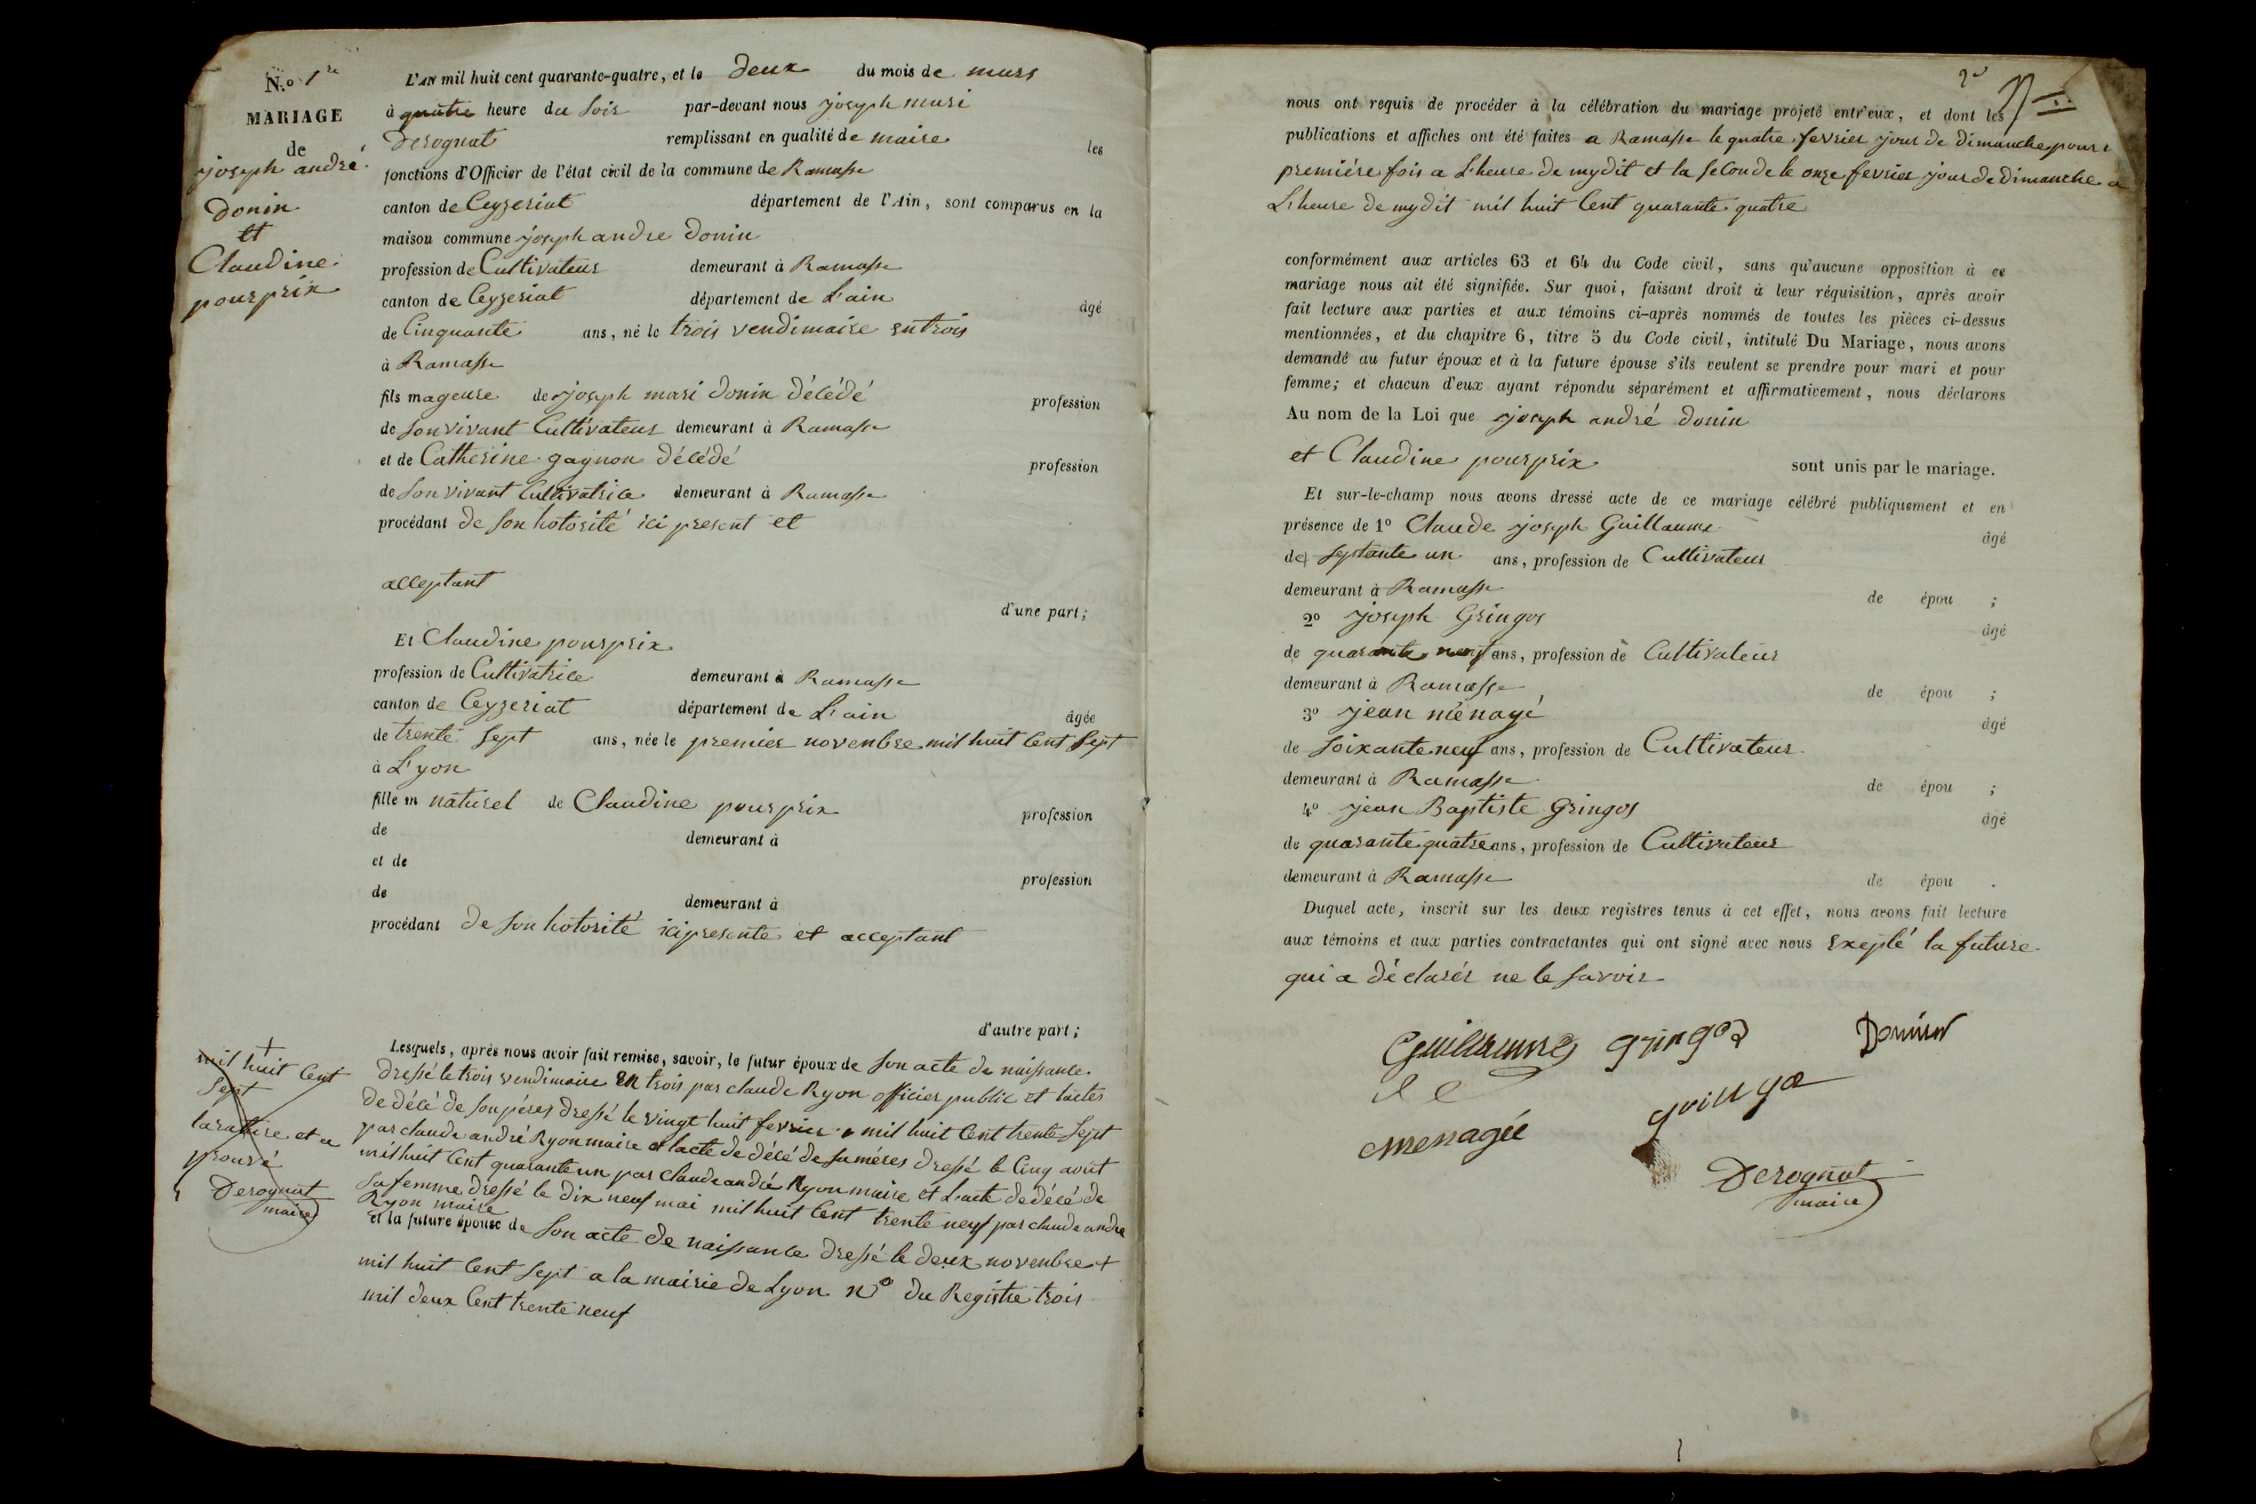 N.o 1re
MARIAGE
de
joseph andré
donin
et
Claudine
pourprix
L'AN mil huit cent quarante-quatre, et le deux du mois de mars
à quatre heure du soir par-devant nous joseph mari
Derognat remplissant en qualité de maire les
fonctions d'Officier de l'état civil de la commune de Ramasse
canton de Ceyzeriat département de l'Ain, sont comparus en la
maison commune joseph andre donin
profession de Cultivateur demeurant à Ramasse
canton de Ceyzeriat département de L'ain âgé
de Cinquante ans, né le trois vendimaire entrois
à Ramasse
fils mageure de joseph mari donin décédé profession
de sonvivant Cultivateur demeurant à Ramasse
et de Catherine gagnon décédé profession
de son vivant Cultivatrice demeurant à Ramasse
procédant de son hotorité ici present et
acceptant
d'une part;
Et Claudine pourprix
profession de Cultivatrice demeurant à Ramasse
canton de Ceyzeriat département de L'ain âgée
de trente sept ans, née le premier novenbre mil huit Cent sept
à L'yon
fille m naturel de Claudine pourprix profession
de demeurant à
et de profession
de demeurant à
procédant de son hotorité ici presente et acceptant
d'autre part;
Lesquels, après nous avoir fait remise, savoir, le futur époux de son acte de naissance
dressé le trois vendimaire en trois par claude Ryon officier public et l'actes
de décé de son péres dressé le vingt huit fevrier mil huit Cent trente sept
par claude andré Ryon maire et lacte de décé de saméres dressé le Cinq aout
mil huit Cent quarante un par Claude andré Ryon maire et L'acte de décé de
sa femme dressé le dix neuf mai mil huit Cent trente neuf par claude andre
Ryon maire
et la future épouse de son acte de naissance dressé le deux novenbre +
mil huit Cent sept a la mairie de Lyon no du Registre trois
mil deux Cent trente neuf
+
mil huit Cent
sept
la rature et a
prouvé
Derognat
maire
2e
nous ont requis de procéder à la célébration du mariage projeté entr'eux, et dont les
publications et affiches ont été faites a Ramasse le quatre fevrier jour de dimanche pour
premiére fois a L'heure de mydit et la seconde le onze fevrier jour de dimanche a
L'heure de mydit mil huit Cent quarante quatre
conformément aux articles 63 et 64 du Code civil, sans qu'aucune opposition à ce
mariage nous ait été signifiée. Sur quoi, faisant droit à leur réquisition, après avoir
fait lecture aux parties et aux témoins ci-après nommés de toutes les pièces ci-dessus
mentionnées, et du chapitre 6, titre 5 du Code civil, intitulé Du Mariage, nous avons
demandé au futur époux et à la future épouse s'ils veulent se prendre pour mari et pour
femme; et chacun d'eux ayant répondu séparément et affirmativement, nous déclarons
Au nom de la Loi que joseph andré donin
et Claudine pourprix sont unis par le mariage.
Et sur-le-champ nous avons dressé acte de ce mariage célébré publiquement et en
présence de 1o Claude joseph Guillaume âgé
de septante un ans, profession de Cultivateur
demeurant à Ramasse de épou ;
2o joseph Gringos âgé
de quarante neuf ans, profession de Cultivateur
demeurant à Ramasse de épou ;
3o jean ménagé âgé
de soixante neuf ans, profession de Cultivateur
demeurant à Ramasse de épou ;
4o jean Baptiste Gringos âgé
de quarante quatre ans, profession de Cultivateur
demeurant à Ramasse de épou .
Duquel acte, inscrit sur les deux registres tenus à cet effet, nous avons fait lecture
aux témoins et aux parties contractantes qui ont signé avec nous exepté la future
qui a déclarér ne le savoir
Guillaume gringos
menagée
Derognat
maire